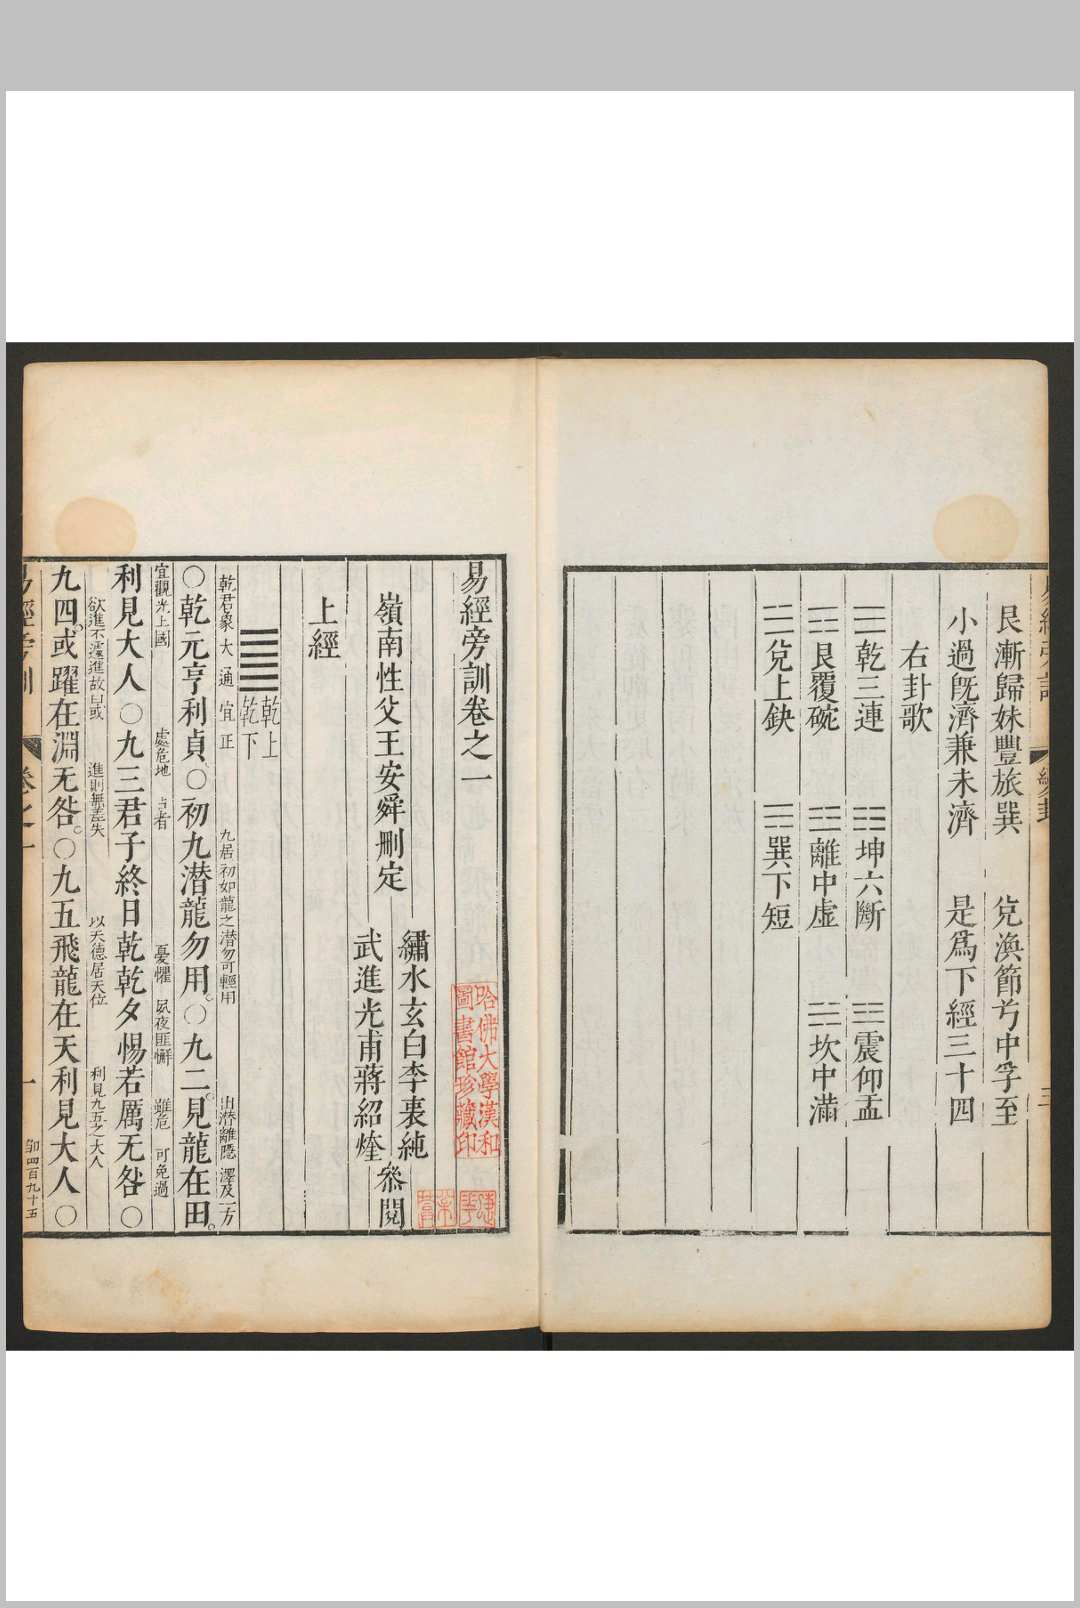 艮漸歸妹豐旅巽　兌渙節兮中孚至
小過旣濟兼未濟　是爲下經三十四
右卦歌
☰乾三連　☷坤六斷　☳震仰盂
☶艮覆碗　☲離中虛　☵坎中滿
☱兌上缺　☴巽下短
易經旁訓卷之一
哈佛大學漢和
圖書館珍藏印
繡水玄白李裏純
嶺南性父王安舜刪定
參閱
武進光甫蔣紹煃
上經
䷀
乾上
乾下
乾君象　大　通　宜　正　九居初如龍之潛勿可輕用　出潛離隱　澤及一方
○乾元亨利貞○初九潛龍勿用○九二見龍在田
宜觀光上國　處危地　者　憂懼　夙夜匪懈　雖危　可免過
利見大人○九三君子終日乾乾夕惕若厲无咎○
欲進不遽進故曰或　進則無差失　以天德居天位　利見九五之大人
九四或躍在淵无咎○九五飛龍在天利見大人○
易經旁訓　卷之一　一　邹四百九十五